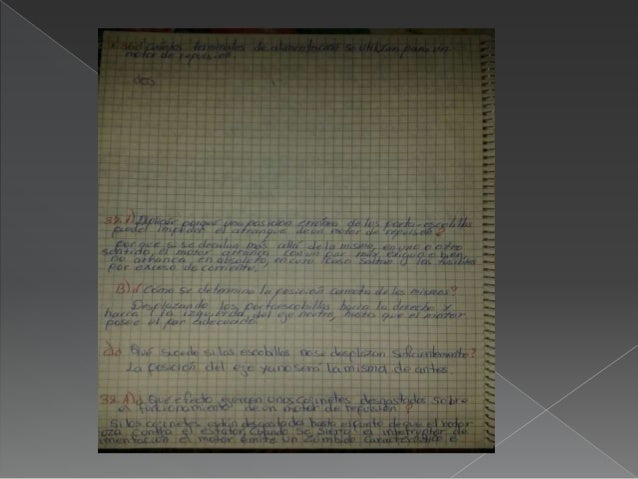 ¿Cuántos terminales de alimentación se utilizan para un
motor de repulsión?
dos
Explicar porqué una posición errónea de los porta-escobillas
puede impedir el arranque de un motor de repulsión?
porque si se desvían más allá de la misma, en uno o otro
sentido, el motor arranca con un par muy exiguo o bien
no arranca, en absoluto, en cuyo caso saltan los fusibles
por exceso de corriente.
B) ¿Como se determina la posición correcta de los mismos?
Desplazando los portaescobillas hacia la derecha y
hacia la izquierda, del eje neutro, hasta que el motor
posee el par adecuado.
Qué sucede si las escobillas no se desplazan suficientemente?
La posición del eje ya no será la misma de antes.
38. A) ¿Que efecto ejercen unos cojinetes desgastados sobre
el funcionamiento de un motor de repulsión?
Si los cojinetes están desgastados hasta el punto de que el rotor
roza contra el estator, cuando se cierra el interruptor de
alimentación el motor emite un zumbido característico e